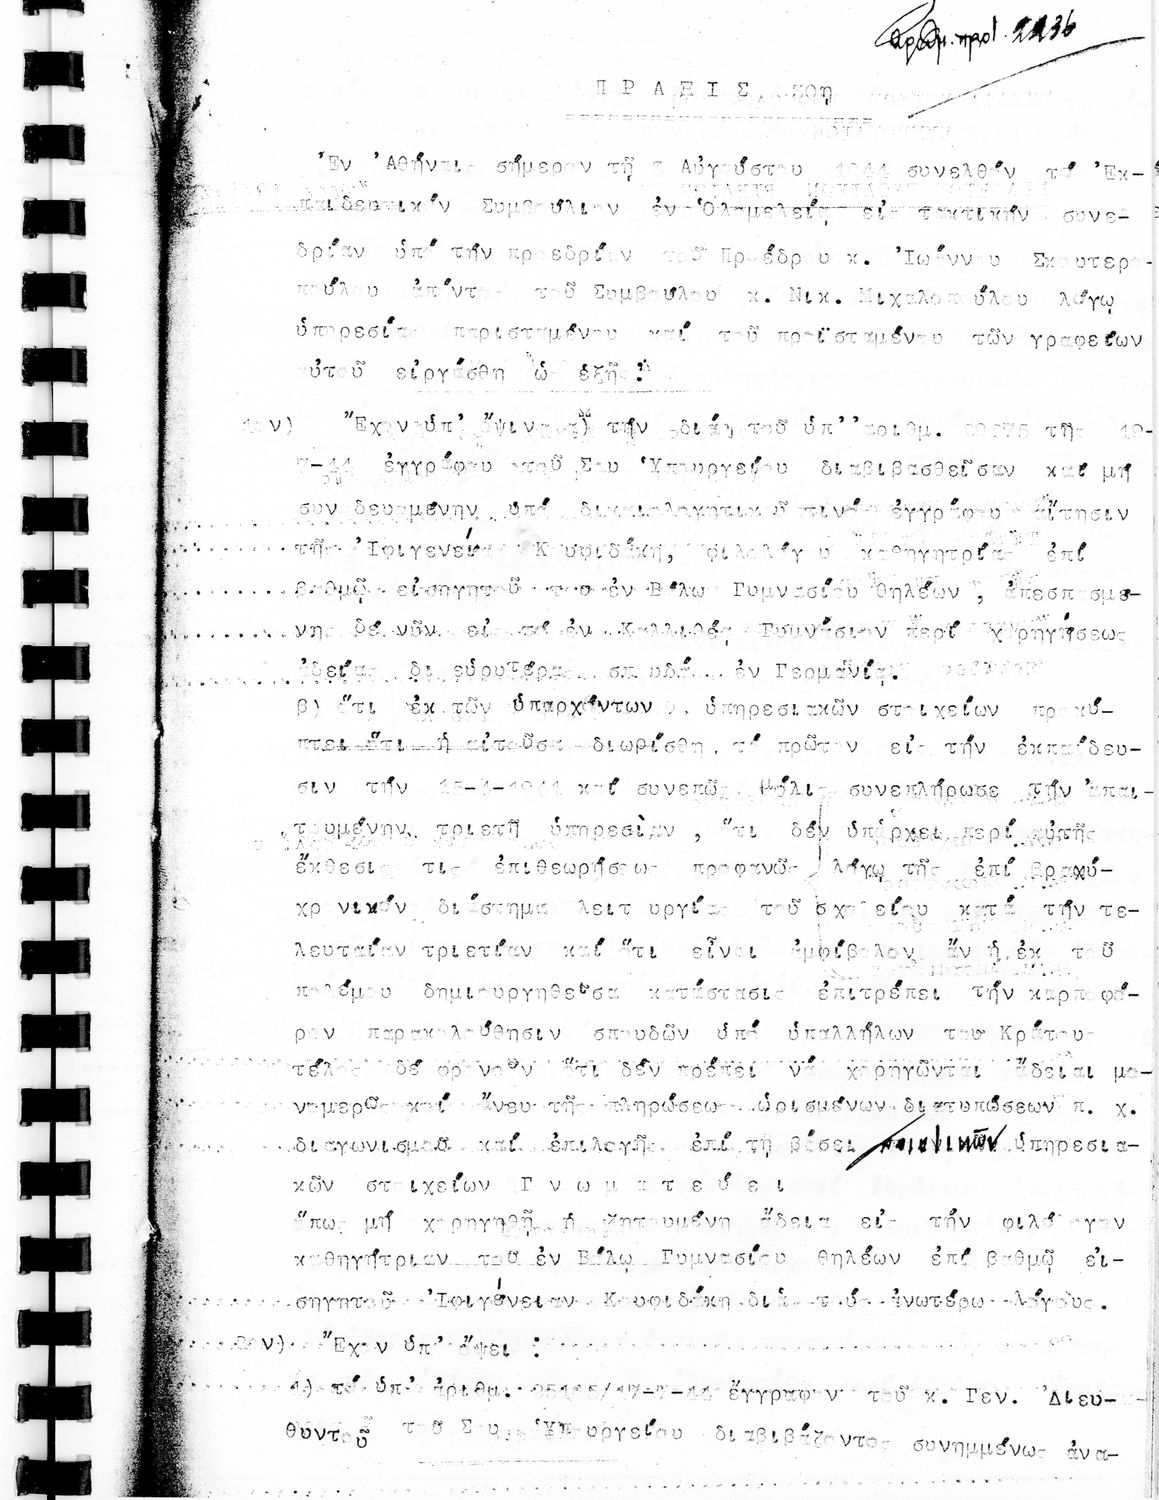 ἀριθμ. πρωτ. 2236
Π Ρ Α Ξ Ι Σ 50η
Ἐν Ἀθήναις σήμερον τῇ Αὐγούστου 1944 συνελθόν τό Ἐκ-
παιδευτικόν Συμβούλιον ἐν Ὁλομελείᾳ εἰς τακτικήν συνε-
δρίαν ὑπό τήν προεδρίαν τοῦ Προέδρου κ. Ἰωάννου Σκουτερο-
πούλου ἀπόντος τοῦ Συμβούλου κ. Νικ. Μιχαλοπούλου λόγῳ
ὑπηρεσίας παρισταμένου καί τοῦ προϊσταμένου τῶν γραφείων
αὐτοῦ εἰργάσθη ὡς ἑξῆς:
1ον) Ἔχον ὑπ' ὄψιν α) τήν διά τοῦ ὑπ' ἀριθμ. τῆς 19-
7-44 ἐγγράφου τοῦ Σου Ὑπουργείου διαβιβασθεῖσαν καί μή
συνοδευομένην ὑπό δικαιολογητικοῦ τινός ἐγγράφου αἴτησιν
τῆς Ἰφιγενείας Κουφιδάκη, φιλολόγου καθηγητρίας ἐπί
βαθμῷ εἰσηγητοῦ τοῦ ἐν Βόλῳ Γυμνασίου θηλέων, ἀπεσπασμέ-
νης δέ νῦν εἰς τό ἐν Καλλιθέᾳ Γυμνάσιον περί χορηγήσεως
ἀδείας δι' εὐρυτέρας σπουδάς ἐν Γερμανίᾳ.
β) ὅτι ἐκ τῶν ὑπαρχόντων ὑπηρεσιακῶν στοιχείων προκύ-
πτει ὅτι ἡ αἰτοῦσα διωρίσθη τό πρῶτον εἰς τήν ἐκπαίδευ-
σιν τήν 15-4-1941 καί συνεπῶς μόλις συνεπλήρωσε τήν ἀπαι-
τουμένην τριετῆ ὑπηρεσίαν, ὅτι δέν ὑπάρχει περί αὐτῆς
ἔκθεσις τις ἐπιθεωρήσεως προφανῶς λόγῳ τῆς ἐπί βραχύ-
χρονικόν διάστημα λειτουργίας τοῦ σχολείου κατά τήν τε-
λευταίαν τριετίαν καί ὅτι εἶναι ἀμφίβολον ἄν ἡ ἐκ τοῦ
πολέμου δημιουργηθεῖσα κατάστασις ἐπιτρέπει τήν καρποφό-
ρον παρακολούθησιν σπουδῶν ὑπό ὑπαλλήλων του Κράτους
τέλος δέ φρονοῦν ὅτι δέν πρέπει νά χορηγῶνται ἄδειαι μο-
νομερῶς καί ἄνευ τῆς πληρώσεως ὡρισμένων διατυπώσεων π. χ.
διαγωνισμοῦ καί ἐπιλογῆς ἐπί τῇ βάσει ὑπηρεσια-
κῶν στοιχείων Γ ν ω μ α τ ε ύ ε ι
ὅπως μή χορηγηθῇ ἡ ζητουμένη ἄδεια εἰς τήν φιλόλογον
καθηγήτριαν τοῦ ἐν Βόλῳ Γυμνασίου θηλέων ἐπί βαθμῷ εἰ-
σηγητοῦ Ἰφιγένειαν Κουφιδάκη διά τούς ἀνωτέρω λόγους.
2ον) Ἔχον ὑπ' ὄψει :
1) τό ὑπ' ἀριθμ. /17-7-44 ἔγγραφον τοῦ κ. Γεν. Διευ-
θυντοῦ τοῦ Σου Ὑπουργείου διαβιβάζοντος συνημμένως ἀνα-